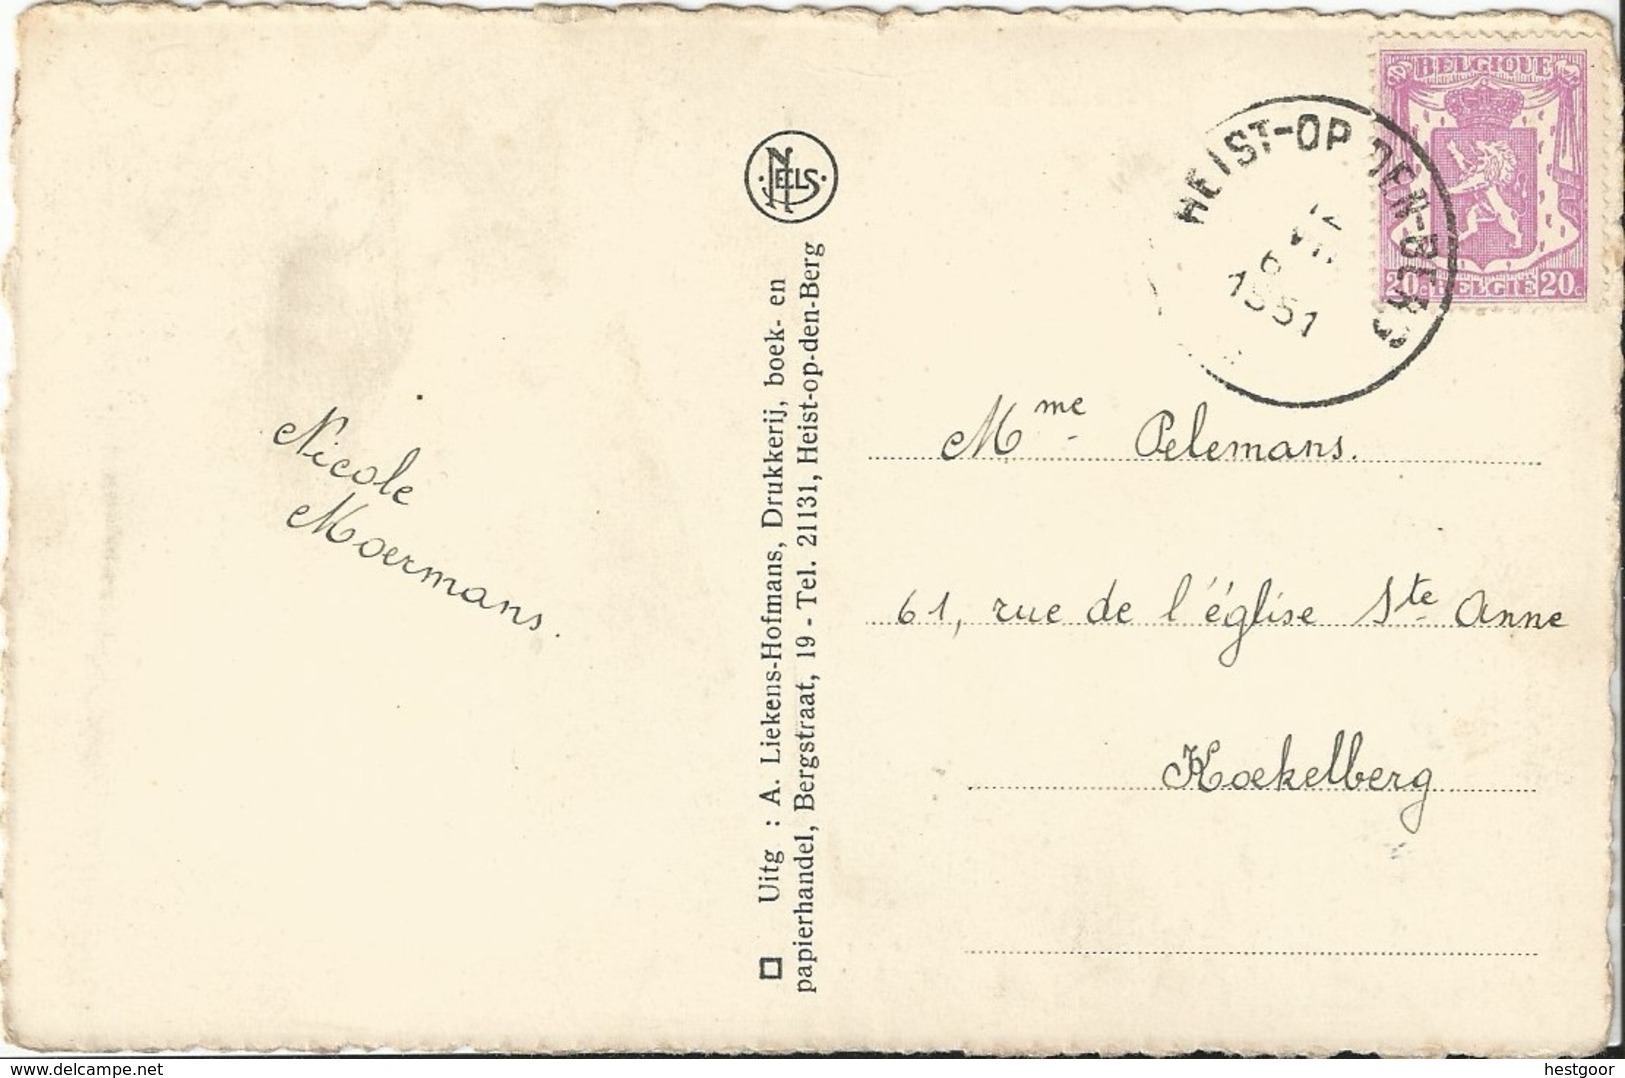 Nicole
Moermans.
NELS
Uitg : A. Liekens-Hofmans, Drukkerij, boek- en
papierhandel, Bergstraat, 19 - Tel. 21131, Heist-op-den-Berg
BELGIQUE
20c BELGIË 20c
HEIST-OP-DEN-BERG
1951
Mme Pelemans.
61, rue de l'église Ste Anne
Koekelberg
delcampe.net
hestgoor